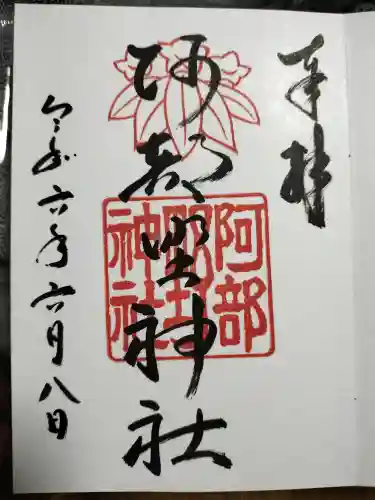 奉拝
阿部野神社
阿部野神社
令和六年六月八日